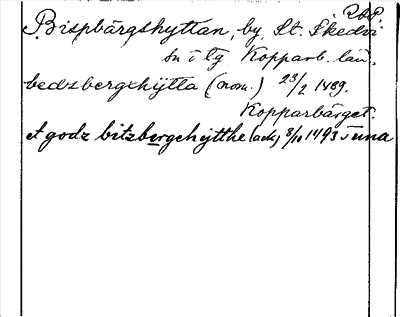 Bispbärgshyttan, by, St. Skedvi
sn i lg Kopparb. län.
bedzbergshÿtta (nom.) 23/2 1489.
Kopparbärget.
et godz bitzbergehytthe (ack) 8/10 1493